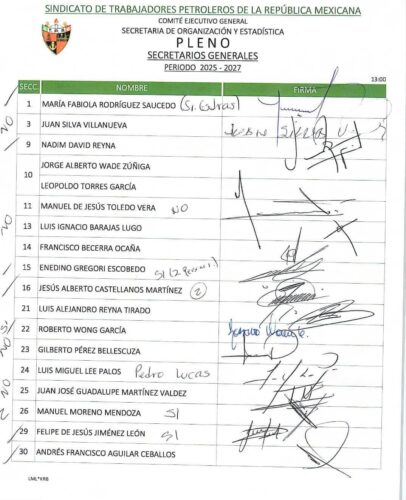 SINDICATO DE TRABAJADORES PETROLEROS DE LA REPÚBLICA MEXICANA
COMITÉ EJECUTIVO GENERAL
SECRETARIA DE ORGANIZACIÓN Y ESTADÍSTICA
PLENO
SECRETARIOS GENERALES
PERIODO 2025 - 2027
13:00
SECC. NOMBRE FIRMA
1 MARÍA FABIOLA RODRÍGUEZ SAUCEDO
3 JUAN SILVA VILLANUEVA JUAN SILVA V.
9 NADIM DAVID REYNA
10 JORGE ALBERTO WADE ZÚÑIGA
LEOPOLDO TORRES GARCÍA
11 MANUEL DE JESÚS TOLEDO VERA NO
13 LUIS IGNACIO BARAJAS LUGO
14 FRANCISCO BECERRA OCAÑA
15 ENEDINO GREGORI ESCOBEDO SI (2
16 JESÚS ALBERTO CASTELLANOS MARTÍNEZ 2
21 LUIS ALEJANDRO REYNA TIRADO
22 ROBERTO WONG GARCÍA
23 GILBERTO PÉREZ BELLESCUZA
24 LUIS MIGUEL LEE PALOS Pedro Lucas
25 JUAN JOSÉ GUADALUPE MARTÍNEZ VALDEZ
26 MANUEL MORENO MENDOZA SI
29 FELIPE DE JESÚS JIMÉNEZ LEÓN SI
30 ANDRÉS FRANCISCO AGUILAR CEBALLOS
LML*KRB